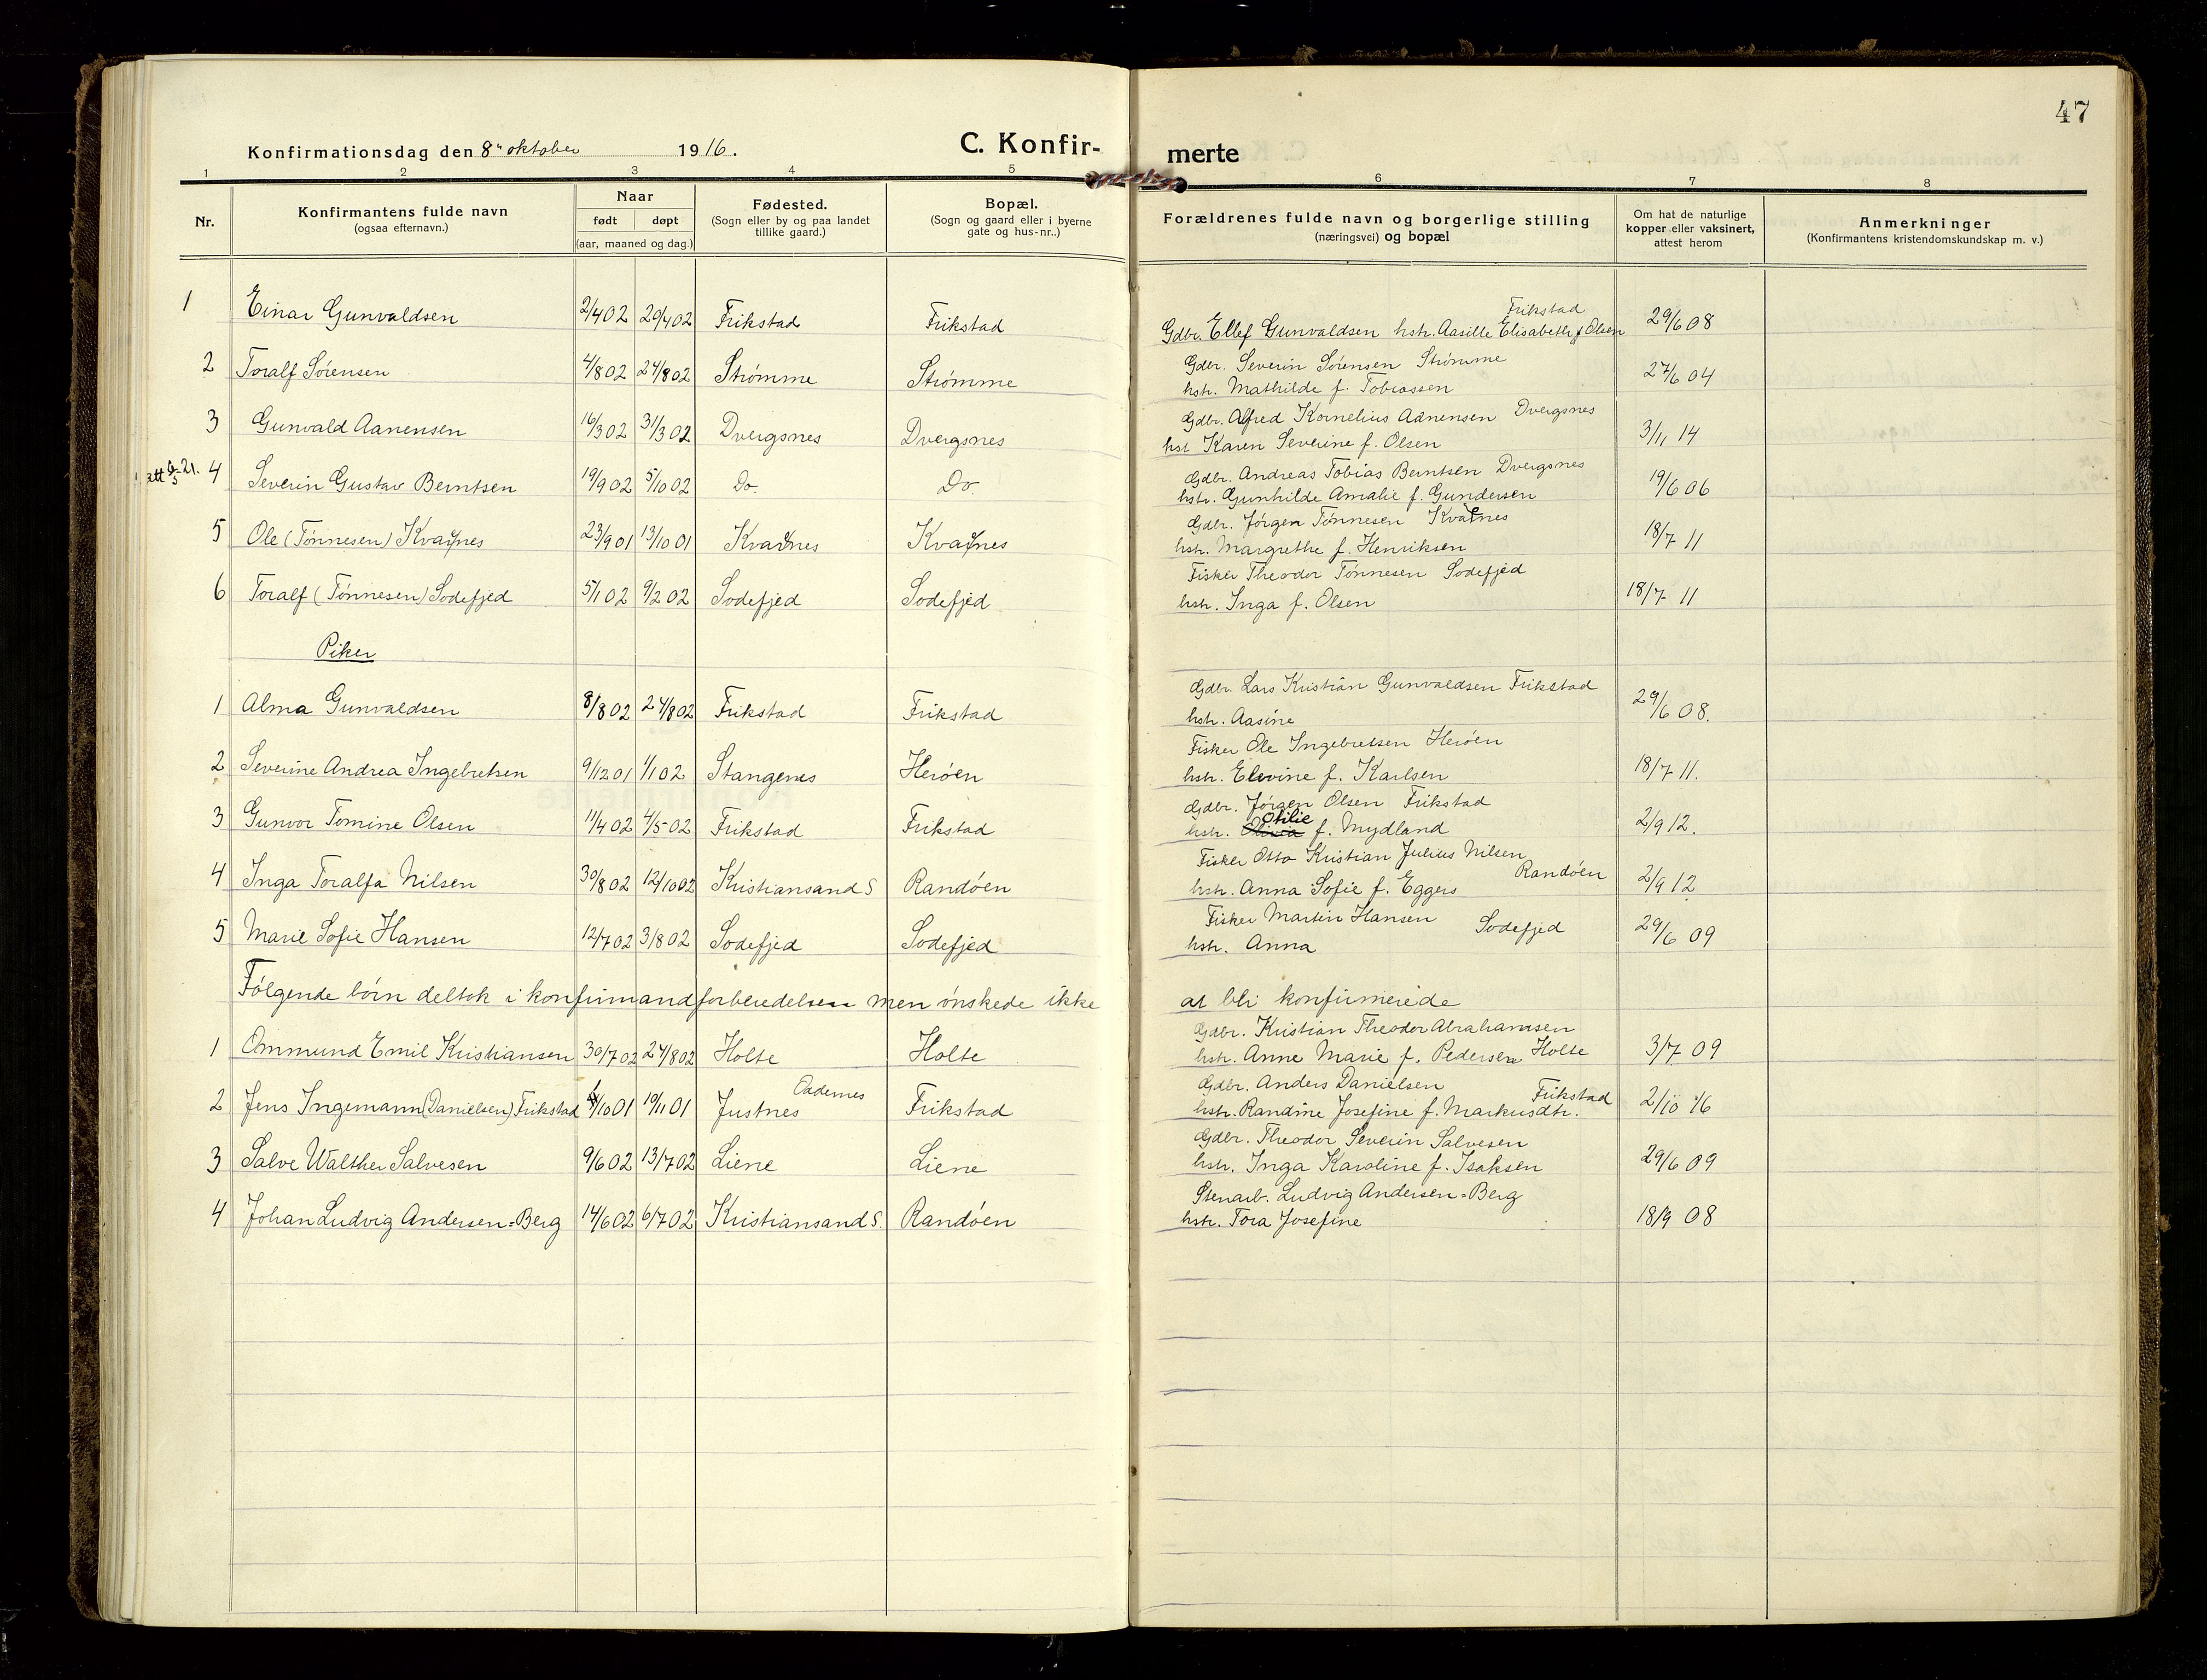 47
Konfirmationsdag den 8de oktober 1916.
C. Konfir-
merte
1 2 3 4 5 6 7 8
Nr.
Konfirmantens fulde navn
(ogsaa efternavn.)
Naar
født døpt
(aar, maaned og dag.)
Fødested.
(Sogn eller by og paa landet
tillike gaard.)
Bopæl.
(Sogn og gaard eller i byerne
gate og hus-nr..)
Forældrenes fulde navn og borgerlige stilling
(næringsvei) og bopæl
Om hat de naturlige
kopper eller vaksinert,
attest herom
Anmerkninger
(Konfirmantens kristendomskundskap m. v.)
1 Einar Gunvaldsen 2/4 02 20/4 02 Frikstad Frikstad
Frikstad
Gdbr. Ellef Gunvaldsen hstr. Aasille Elisabeth f Olsen 29/6 08
2 Toralf Sørensen 4/8 02 24/8 02 Strømme Strømme
Gdbr. Severin Sørensen Strømme
hstr. Mathilde f. Tobiassen 27/6 04
3 Gunvald Aanensen 16/3 02 31/3 02 Dvergsnes Dvergsnes
Gdbr. Alfred Kornelius Aanensen Dvergsnes
hst Karen Severine f. Olsen 3/11 14
att 4 Severin Gustav Berntsen 19/9 02 5/10 02 Do. Do.
Gdbr. Andreas Tobias Berntsen Dvergsnes
hstr. Gunhilde Amalie f. Gundersen 19/6 06
5 Ole (Tønnesen) 23/9 01 13/10 01
Gdbr. Jørgen Tønnesen
hstr. Margrethe f. Henriksen 18/7 11
6 Toralf (Tønnesen) Sodefjed 5/1 02 9/2 02 Sodefjed Sodefjed
Fisker Theodor Tønnesen Sodefjed
hstr. Inga f. Olsen 18/7 11
Piker
1 Alma Gunvaldsen 8/8 02 24/8 02 Frikstad Frikstad
Gdbr. Lars Kristian Gunvaldsen Frikstad
hstr. Aasine 29/6 08.
2 Severine Andrea Ingebretsen 9/12 01 1/1 02 Stangenes Herøen
Fisker Ole Ingebretsen Herøen
hstr. Elevine f. Karlsen 18/7 11.
3 Gunvor Tomine Olsen 11/4 02 4/5 02 Frikstad Frikstad
Gdbr. Jørgen Olsen Frikstad
hstr. Olivia Otilie f. Mydland 2/9 12.
4 Inga Toralfa Nilsen 30/8 02 12/10 02 Kristiansand S Randøen
Fisker Otto Kristian Julius Nilsen
hstr. Anna Sofie f. Eggers Randøen 2/9 12
5 Marie Sofie Hansen 12/7 02 3/8 02 Sodefjed Sodefjed
Fisker Martin Hansen Sodefjed
hstr. Anna 29/6 09
Følgende børn deltok i konfirmandforberedelsen men ønskede ikke at bli konfirmerede
1 Ommund Emil Kristiansen 30/7 02 24/8 02 Holte Holte
Gdbr. Kristian Theodor Abrahamsen
hstr. Anne Marie f. Pedersen Holte 3/7 09
2 Jens Ingemann (Danielsen) Frikstad /10 01 10/11 01 Justnes Oddernes Frikstad
Gdbr. Anders Danielsen
hstr. Randine Josefine f. Markusdtr. Frikstad 2/10 16
3 Salve Walther Salvesen 9/6 02 13/7 02 Liene Liene
Gdbr. Theodor Severin Salvesen
hstr. Inga Karoline f. Isaksen 29/6 09
4 Johan Ludvig Andersen-Berg 14/6 02 6/7 02 Kristiansand S. Randøen
Stenarb. Ludvig Andersen-Berg
hstr. Tora Josefine 18/9 08